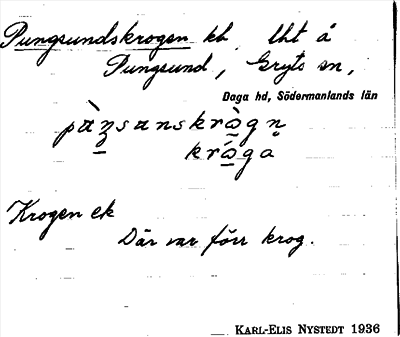 Pungsundskrogen kb, lht å
Pungsund, Gryts sn,
Daga hd, Södermanlands län
kròga
Krogen ek
Där var förr krog.
KARL-ELIS NYSTEDT 1936